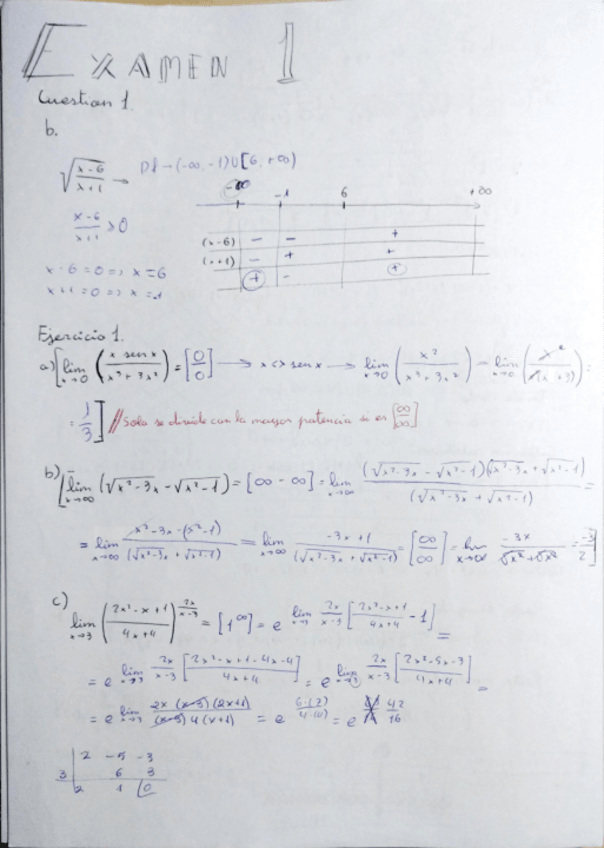 EXAMEN 1
Cuestion 1.
b.
√((x-6)/(x+1)) → Df → (-∞, -1) ∪ [6, +∞)
-∞ -1 6 +∞
(x-6)/(x+1) ≥ 0
(x-6) - - +
(x+1) - + +
+ - +
x-6=0 => x=6
x+1=0 => x=-1
Ejercicio 1.
a) [lim x→0 (x sen x / x³+3x²) = [0/0] → x <> sen x → lim x→0 (x² / x³+3x²) = lim x→0 (x² / x²(x+3)) =
= 1/3] // Solo se divide con la mayor potencia si es [∞/∞]
b) [lim x→∞ (√(x²-3x) - √(x²-1)) = [∞ - ∞] = lim x→∞ (√(x²-3x) - √(x²-1))(√(x²-3x) + √(x²-1)) / (√(x²-3x) + √(x²-1)) =
= lim x→∞ x²-3x-(x²-1) / (√(x²-3x) + √(x²-1)) = lim x→∞ -3x+1 / (√(x²-3x) + √(x²-1)) = [∞/∞] = lim x→∞ -3x / √x²+√x² = -3/2]
c) lim x→3 (2x²-x+1 / 4x+4)^(2x/x-3) = [1^∞] = e^ lim x→3 2x/x-3 [2x²-x+1 / 4x+4 - 1] =
= e^ lim x→3 2x/x-3 [2x²-x+1-4x-4 / 4x+4] = e^ lim x→3 2x/x-3 [2x²-5x-3 / 4x+4] =
= e^ lim x→3 2x(x-3)(2x+1) / (x-3)4(x+1) = e^ 6·(7) / 4·(4) = e^ 42/16
2 -5 -3
3 6 3
2 1 0